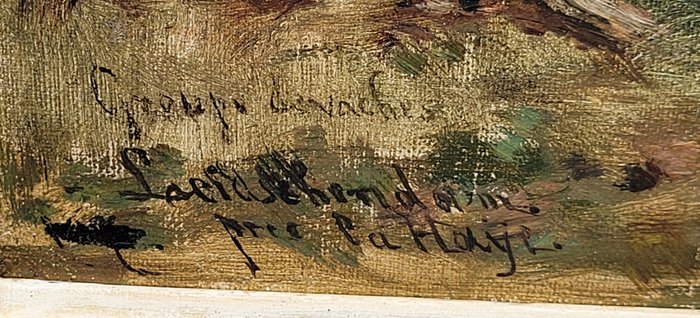 Groupe de vaches
Leidschendam.
près la Haye.